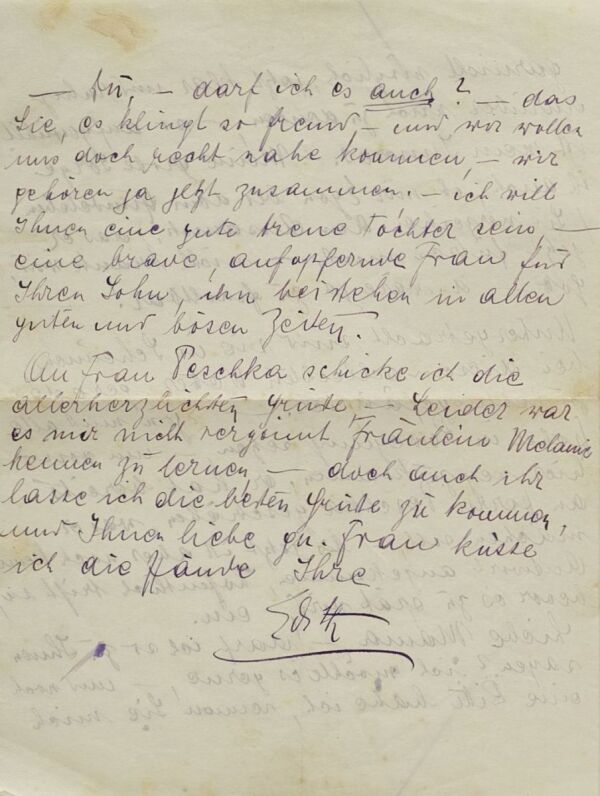 — Du, — darf ich es auch? — das
Sie, es klingt so fremd, — und wir wollen
uns doch recht nahe kommen, — wir
gehören ja jetzt zusammen. — ich will
Ihnen eine gute treue Tochter sein, —
eine brave, aufopfernde Frau für
Ihren Sohn, ihn beistehen in allen
guten und bösen Zeiten.
An Frau Peschka schicke ich die
allerherzlichsten Grüße, — Leider war
es mir nicht vergönnt Fräulein Melanie
kennen zu lernen, — doch auch ihr
lasse ich die besten Grüße zu kommen,
und Ihnen liebe gn. Frau küsse
ich die Hände Ihre
Edith